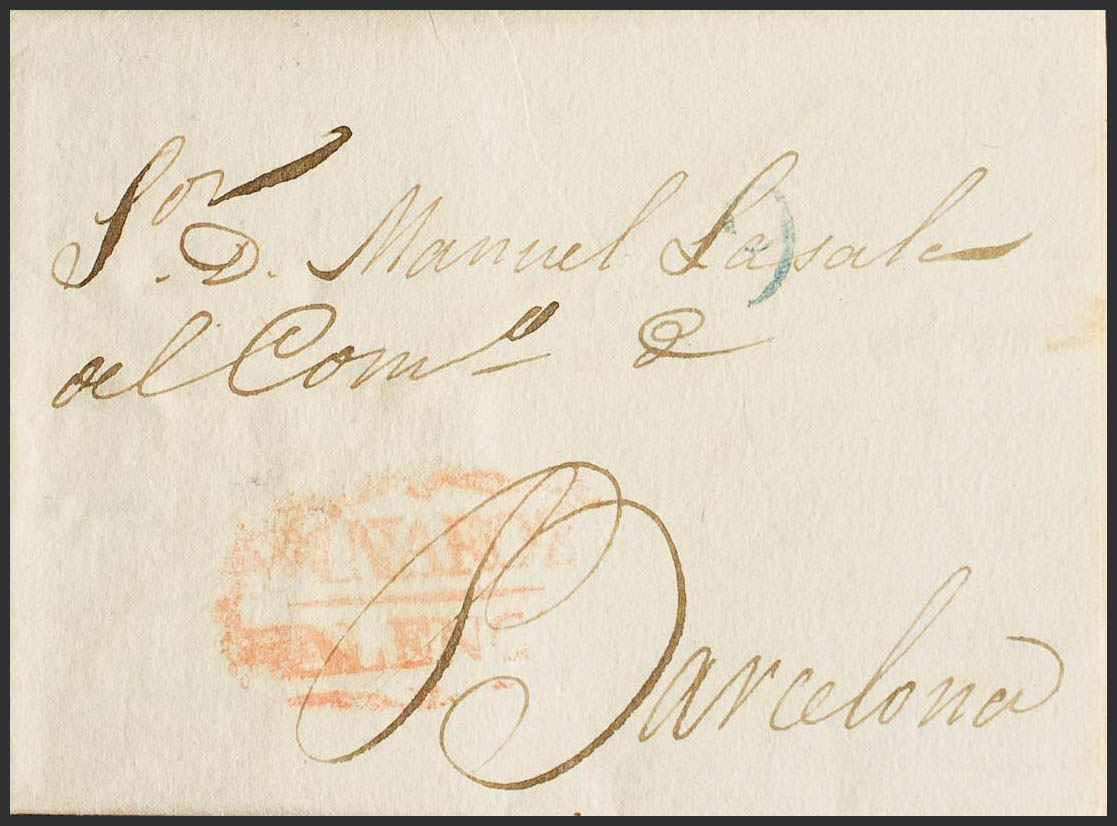 Sor. D. Manuel Lasale
del Como. de
Barcelona